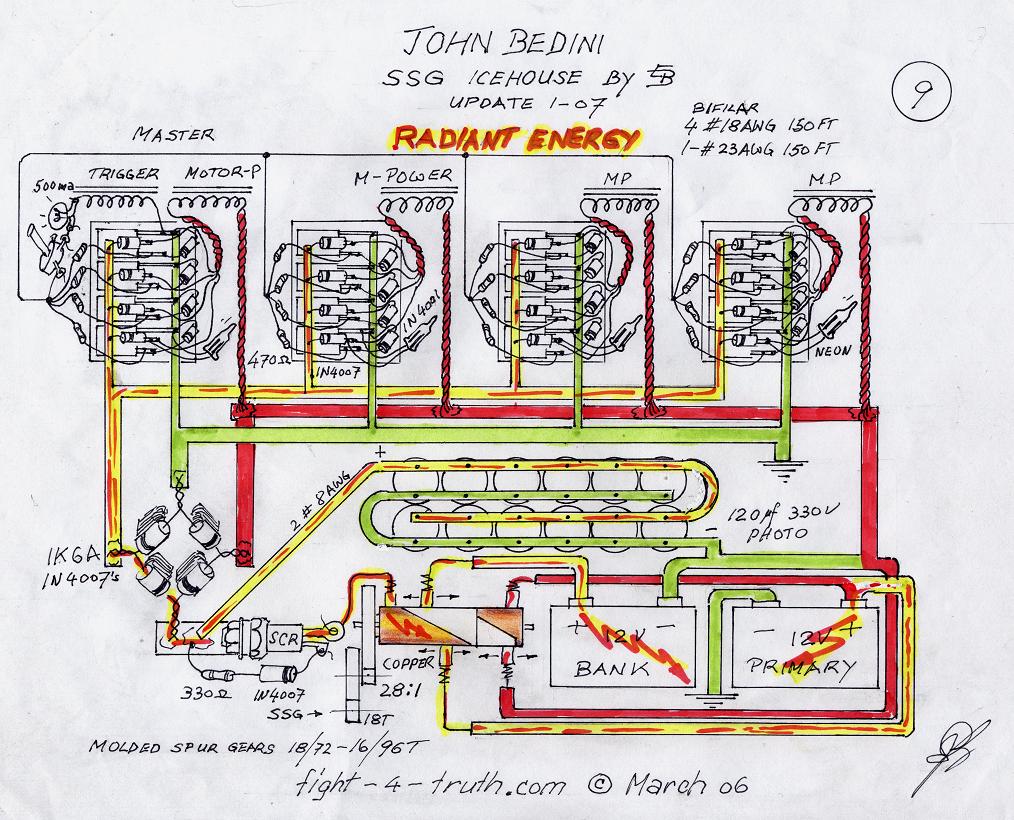 JOHN BEDINI
SSG ICEHOUSE BY EB
UPDATE 1-07
RADIANT ENERGY
9
BIFILAR
4 #18AWG 150FT
1-#23AWG 150FT
MASTER
500ma
TRIGGER
MOTOR-P
M-POWER
MP
MP
470Ω
1N4007
1N4001
NEON
2 #8AWG
+
-
120µf 330V
PHOTO
1K6A
1N4007's
SCR
330Ω
1N4007
SSG →
COPPER
28:1
18T
+ 12V -
BANK
- 12V +
PRIMARY
MOLDED SPUR GEARS 18/72-16/96T
fight-4-truth.com © March 06